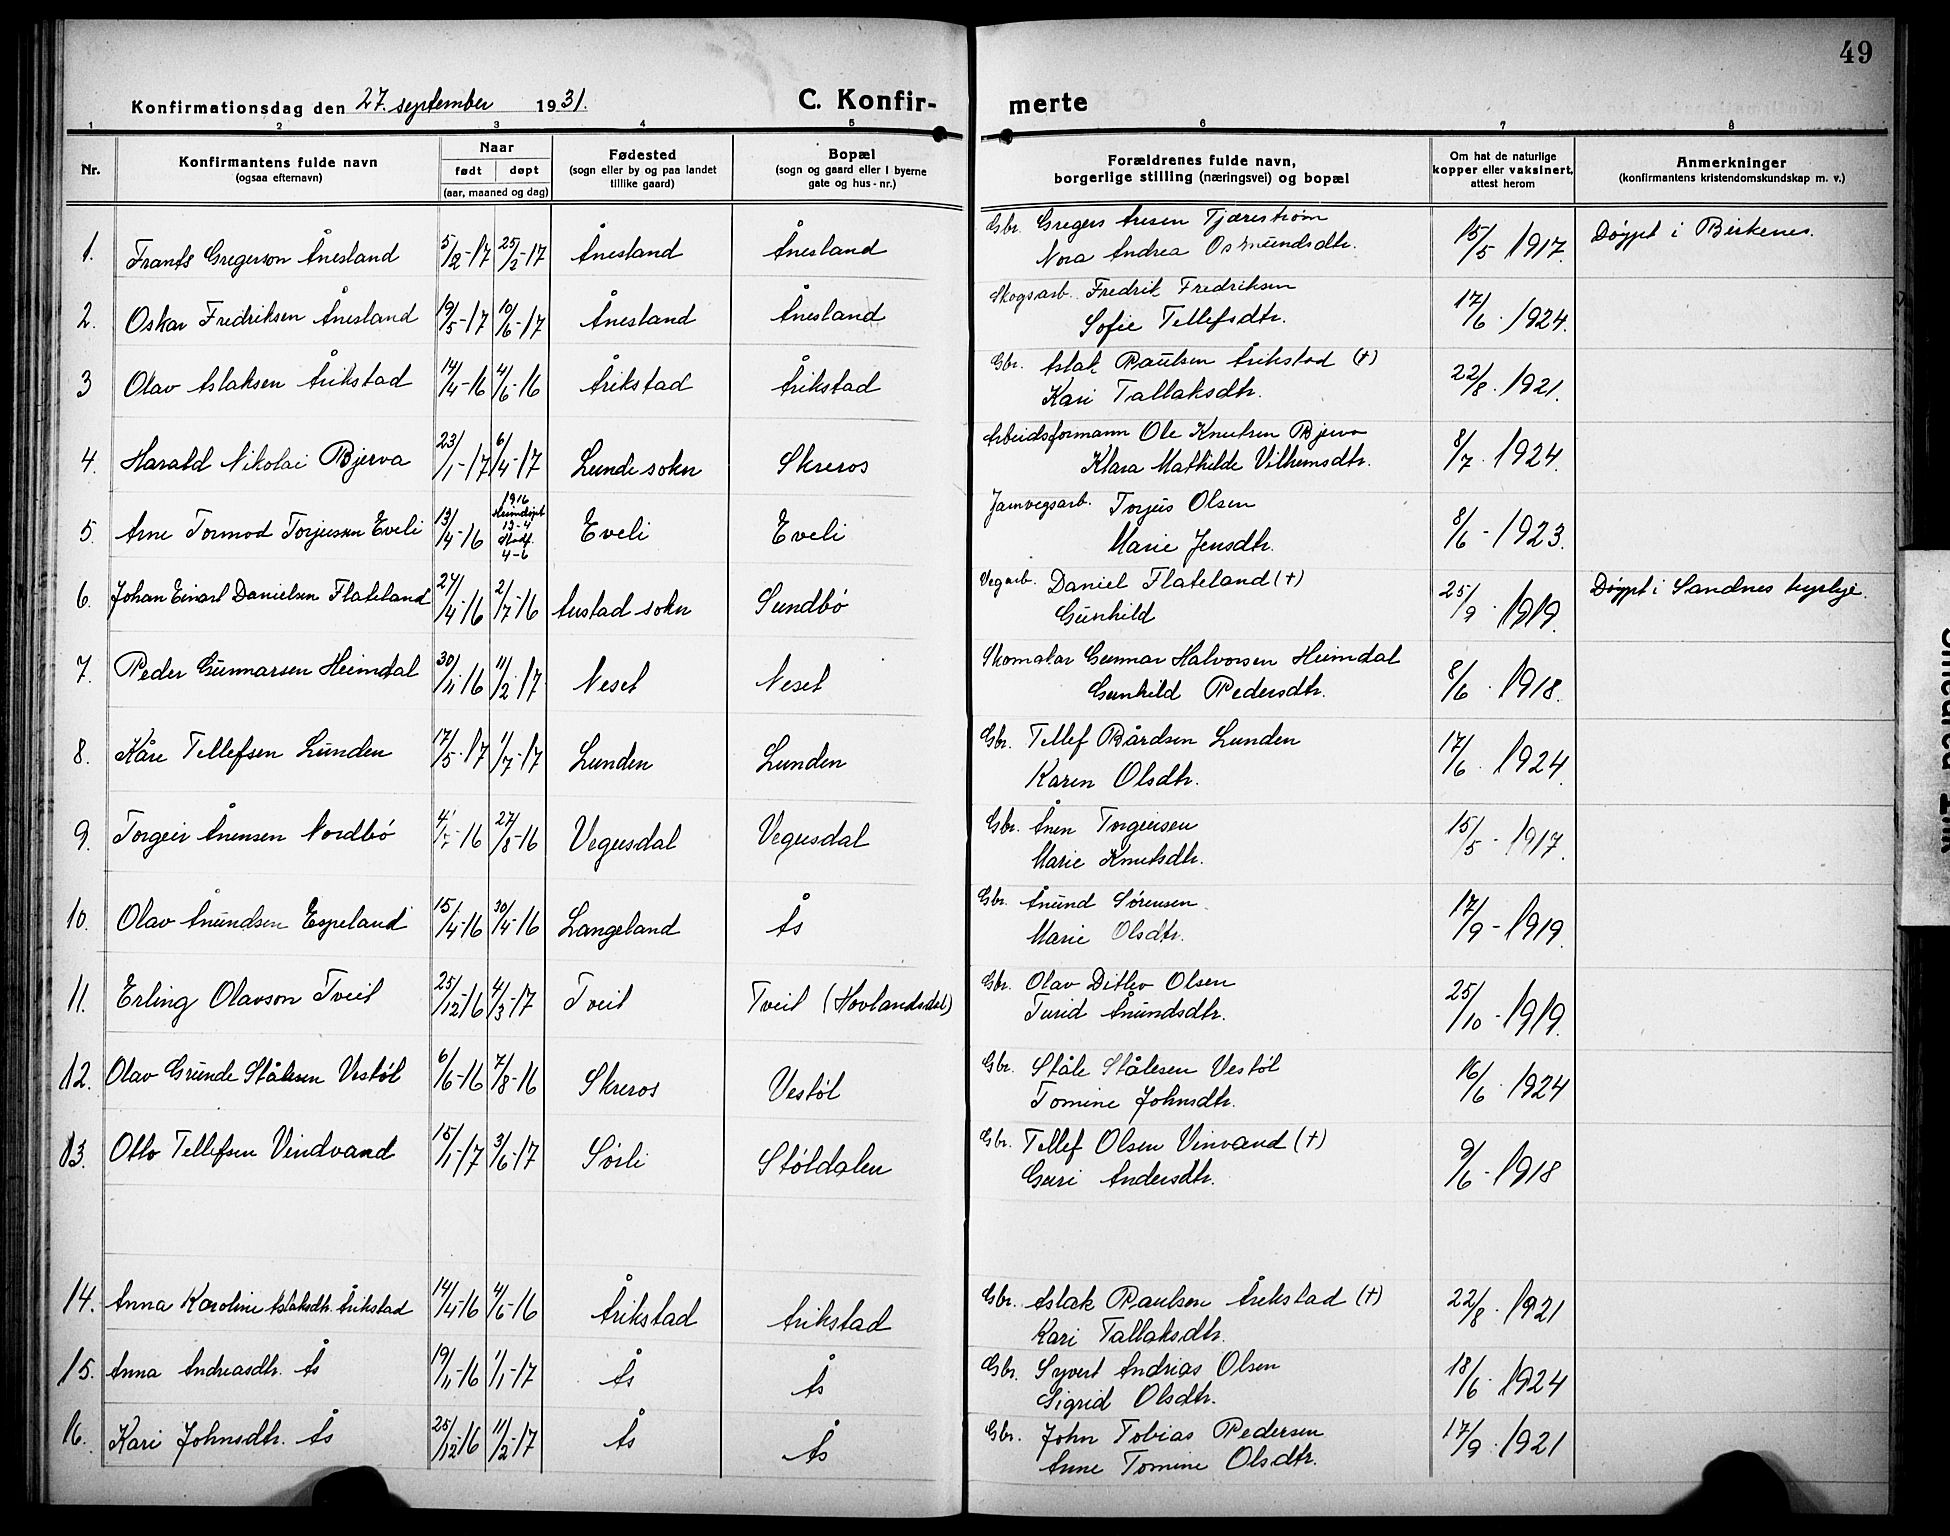 49
Konfirmationsdag den 27. september 1931.
C. Konfir-
merte
1 2 3 4 5 6 7 8
Nr.
Konfirmantens fulde navn
(ogsaa efternavn)
Naar
født
døpt
(aar, maaned og dag)
Fødested
(sogn eller by og paa landet
tillike gaard)
Bopæl
(sogn og gaard eller i byerne
gate og hus-nr.)
Forældrenes fulde navn,
borgerlige stilling (næringsvei) og bopæl
Om hat de naturlige
kopper eller vaksinert,
attest herom
Anmerkninger
(konfirmantens kristendomskundskap m. v.)
1. Frants Gregerson Ånesland 5/2-17 25/2-17 Ånesland Ånesland Gbr. Gregers Aresen Tjærestrøm 15/5 1917. Døypt i Birkenes.
Nora Andrea Osmundsdtr.
2. Oskar Fredriksen Ånesland 19/5-17 10/6-17 Ånesland Ånesland Skogsarb. Fredrik Fredriksen 17/6. 1924.
Sofie Tellefsdtr.
3 Olav Aslaksen Årikstad 14/4-16 4/6-16 Årikstad Årikstad Gbr. Aslak Paulsen Årikstad (+) 22/8. 1921.
Kari Tallaksdtr.
4. Harald Nikolai Bjerva 23/1-17 6/4-17 Lunde sokn Skreros Arbeidsformann Ole Knutsen Bjerva 8/7. 1924.
Klara Mathilde Vilhemsdtr.
5. Arne Tormod Torjussen Eveli 13/4-16 1916
Heimdøypt
13-4
Stadf.
4-6 Eveli Eveli Jarnvegsarb. Torjus Olsen 8/6 - 1923.
Marie Jensdtr.
6. Johan Einart Danielsen Flateland 27/4-16 2/7-16 Austad sokn Sundbø Vegarb. Daniel Flateland (+) 25/9. 1919. Døypt i Sandnes kyrkje.
Gunhild
7. Peder Gunnarsen Heimdal 30/11 16 11/2-17 Neset Neset Skomakar Gunnar Halvorsen Heimdal 8/6. 1918.
Gunhild Pedersdtr.
8. Kåre Tellefsen Lunden 17/5-17 1/7-17 Lunden Lunden Gbr. Tellef Bårdsen Lunden 17/6. 1924.
Karen Olsdtr.
9. Torgeir Ånensen Nordbø 16 27/8-16 Vegusdal Vegusdal Gbr. Ånen Torgeirsen 15/5 - 1917.
Marie Knutsdtr.
10. Olav Ånundsen Espeland 15/4-16 30/4-16 Langeland Ås Gbr. Ånund Sørensen 17/9 - 1919.
Marie Olsdtr.
11. Erling Olavson Tveit 25/12-16 4/3-17 Tveit Tveit (Hovlandsdal) Gbr. Olav Ditlev Olsen 25/10 - 1919.
Turid Ånundsdtr.
12. Olav Grunde Stålesen Vestøl 6/6-16 7/8-16 Skreros Vestøl Gbr. Ståle Stålesen Vestøl 16/6. 1924
Tomine Johnsdtr.
13. Otto Tellefsen Vindvand 15/1-17 3/6-17 Sørli Støldalen Gbr. Tellef Olsen Vinvand (+) 9/6 - 1918
Guri Andersdtr.
14. Anna Karoline Aslaksdtr. Årikstad 14/4-16 4/6-16 Årikstad Årikstad Gbr. Aslak Paulsen Årikstad (+) 22/8. 1921
Kari Tallaksdtr.
15. Anna Andreasdtr. Ås 19/11-16 1/1-17 Ås Ås Gbr. Syvert Andrias Olsen 18/6. 1924
Sigrid Olsdtr.
16. Kari Johnsdtr. Ås 25/12-16 11/2-17 Ås Ås Gbr. John Tobias Pedersen 17/9. 1921
Anne Tomine Olsdtr.